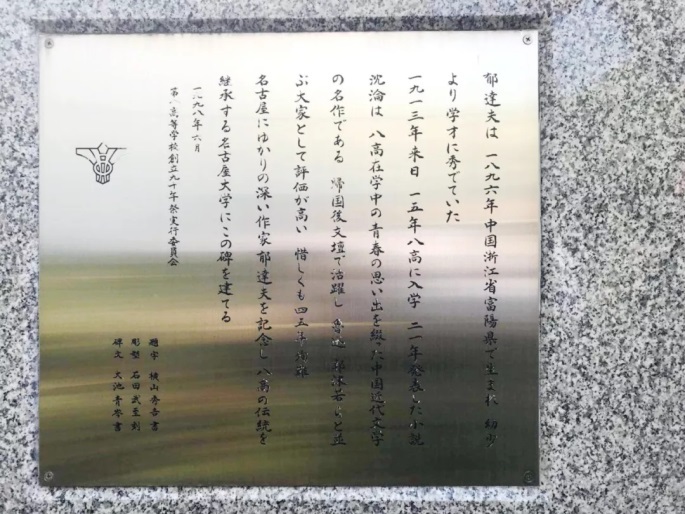 郁達夫は 一八九六年中国浙江省富陽県で生まれ 幼少
より学才に秀でていた
一九一三年来日 一五年八高に入学 二一年発表した小説
沈淪は 八高在学中の青春の思い出を綴った中国近代文学
の名作である 帰国後文壇で活躍し 魯迅 郭沫若らと並
ぶ大家として評価が高い 惜しくも四五年
名古屋にゆかりの深い作家郁達夫を記念し 八高の伝統を
継承する名古屋大学にこの碑を建てる
一九九八年六月
第八高等学校創立九十年祭実行委員会
題字 横山 書
彫塑 石田武至 刻
碑文 大池青岑 書